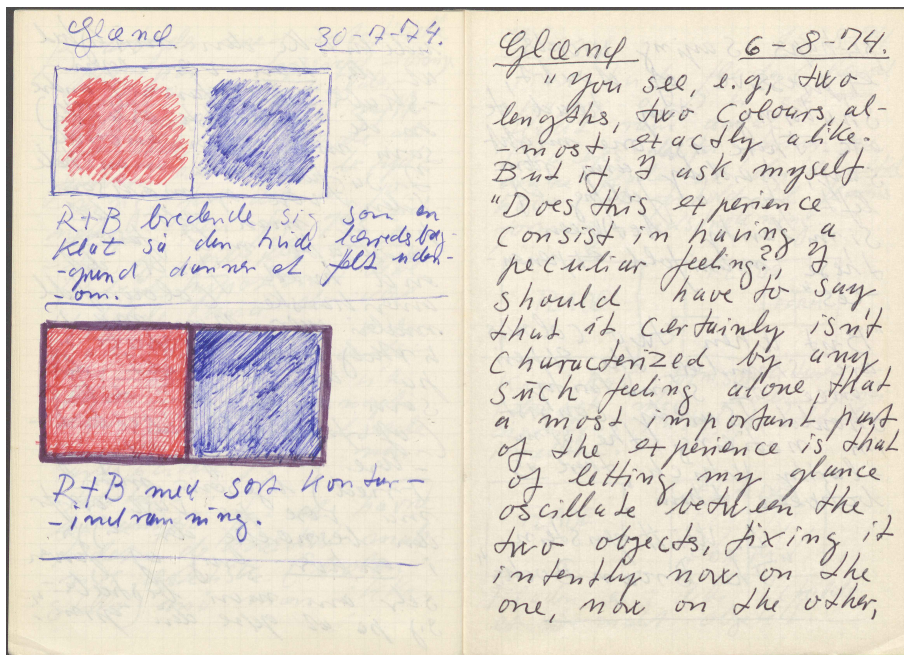 Glænø 30-7-74.
R+B bredende sig som en
klat så den hvide lærredsbag-
-grund danner et felt uden-
-om.
R+B med sort kontur-
-indramning.
Glænø 6-8-74.
"You see, e.g, two
lengths, two colours, al-
-most exactly alike.
But if I ask myself
"Does this experience
consist in having a
peculiar feeling?", I
should have to say
that it certainly isn't
characterized by any
such feeling alone, that
a most important part
of the experience is that
of letting my glance
oscillate between the
two objects, fixing it
intently now on the
one, now on the other,